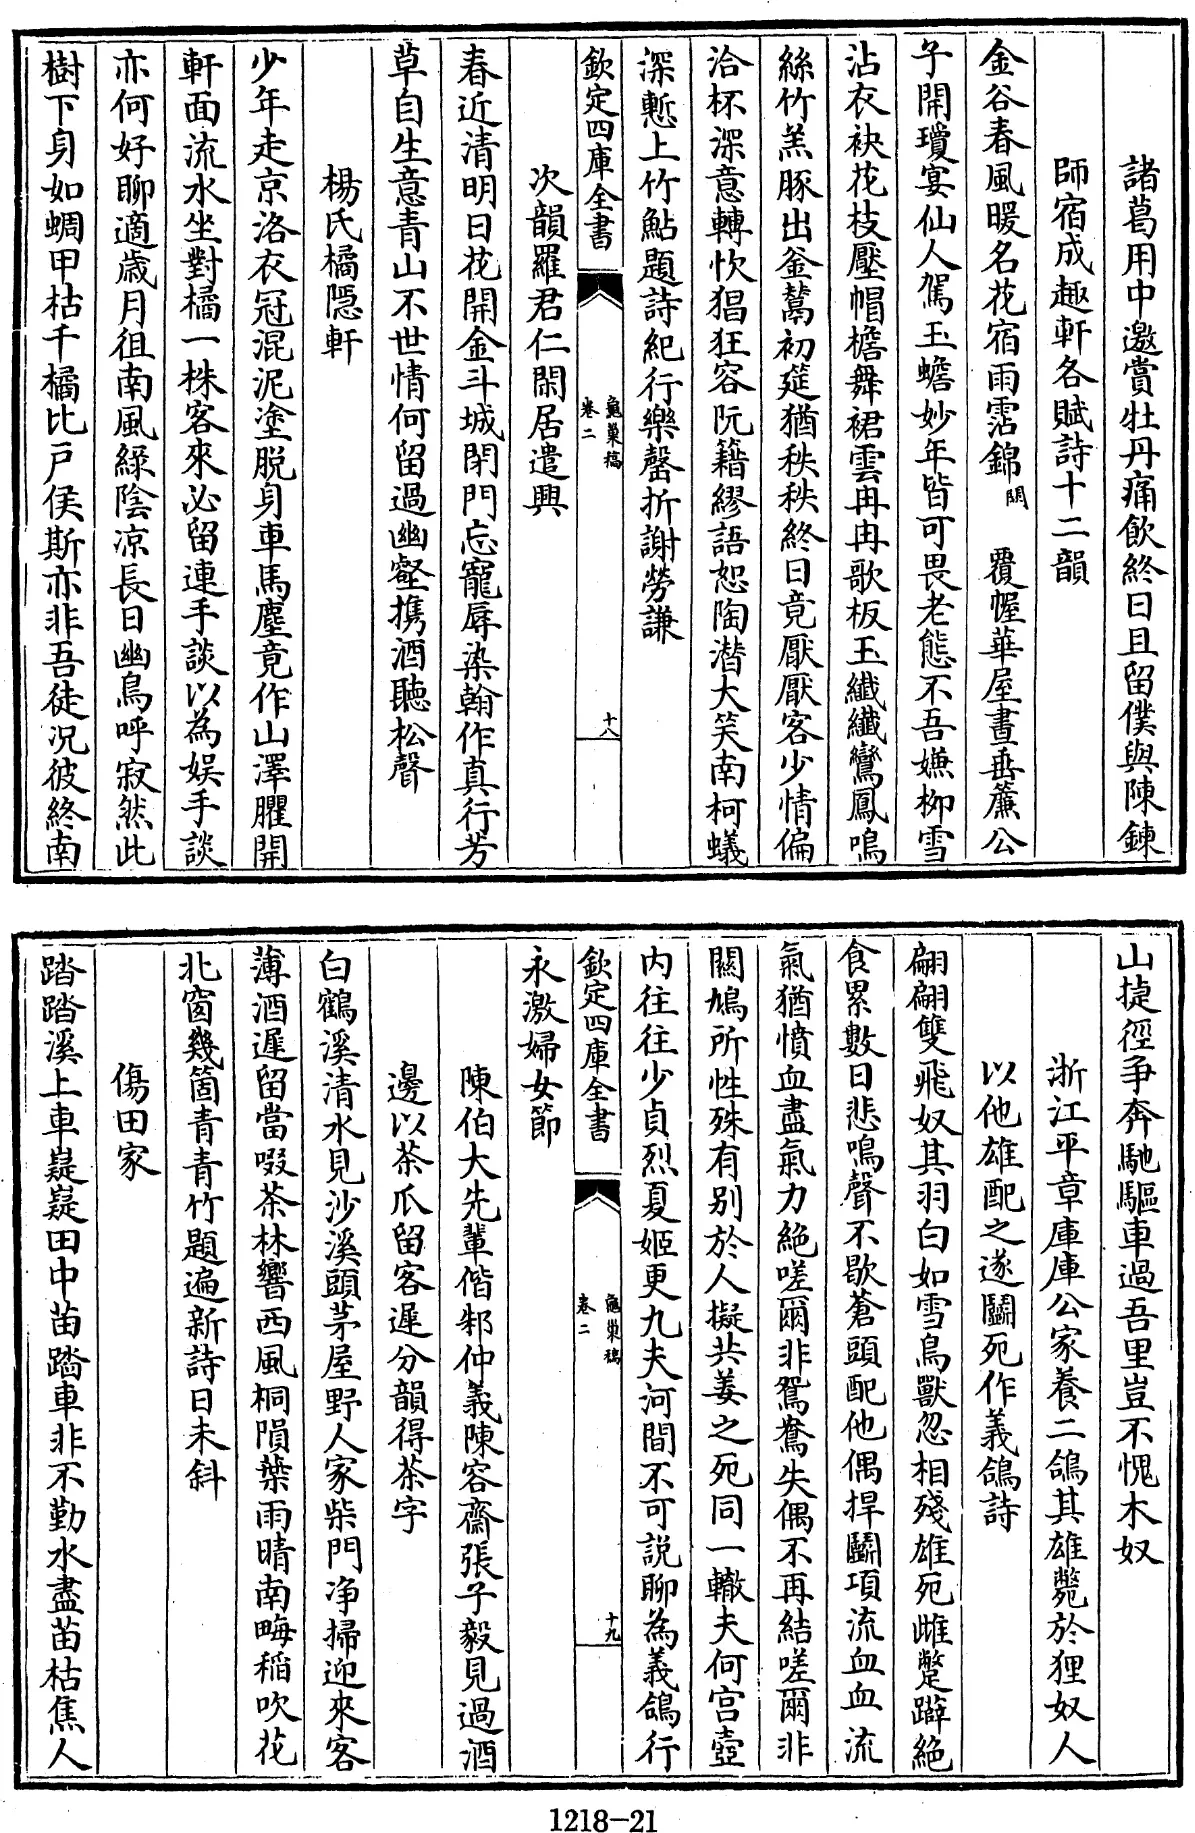 諸葛用中邀賞牡丹痛飲終日且留僕與陳鍊
師宿成趣軒各賦詩十二韻
金谷春風暖名花宿雨霑錦闕覆幄華屋晝垂簾公
子開瓊宴仙人駕玉蟾妙年皆可畏老態不吾嫌柳雪
沾衣袂花枝壓帽檐舞裙雲冉冉歌板玉纖纖鸞鳳鳴
絲竹羔豚出釜鬵初筵猶秩秩終日竟厭厭客少情偏
洽杯深意轉忺猖狂容阮籍繆語恕陶潛大笑南柯蟻
深慙上竹鮎題詩紀行樂罄折謝勞謙
欽定四庫全書
龜巢稿
卷二
十八
次韻羅君仁閑居遣興
春近清明日花開金斗城閉門忘寵辱染翰作真行芳
草自生意青山不世情何留過幽壑携酒聽松聲
楊氏橘隱軒
少年走京洛衣冠混泥塗脱身車馬塵竟作山澤臞開
軒面流水坐對橘一株客來必留連手談以為娱手談
亦何好聊適歳月徂南風緑陰凉長日幽鳥呼寂然此
樹下身如蜩甲枯千橘比戸侯斯亦非吾徒况彼終南
山捷徑争奔馳驅車過吾里豈不愧木奴
浙江平章庫庫公家養二鴿其雄斃於狸奴人
以他雄配之遂鬭死作義鴿詩
翩翩雙飛奴其羽白如雪鳥獸忽相殘雄死雌躄躃絶
食累數日悲鳴聲不歇蒼頭配他偶捍鬭項流血血流
氣猶憤血盡氣力絶嗟爾非鴛鴦失偶不再結嗟爾非
關鳩所性殊有别於人擬共姜之死同一轍夫何宫壼
内往往少貞烈夏姬更九夫河間不可説聊為義鴿行
欽定四庫全書
龜巢稿
卷二
十九
永激婦女節
陳伯大先輩偕邾仲義陳容齋張子毅見過酒
邊以茶瓜留客遲分韻得茶字
白鶴溪清水見沙溪頭茅屋野人家柴門净掃迎來客
薄酒遲留當啜茶林響西風桐隕葉雨晴南畮稻吹花
北窗幾箇青青竹題遍新詩日未斜
傷田家
踏踏溪上車嶷嶷田中苗踏車非不勤水盡苗枯焦人
1218-21